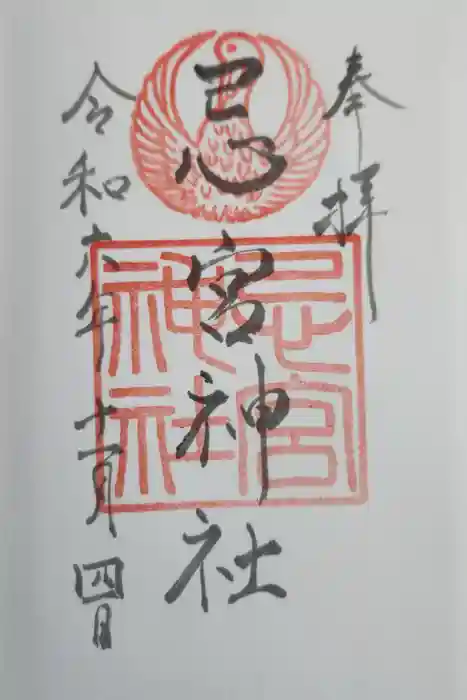 奉拝
忌宮神社
忌宮
神社
令和六年十一月四日